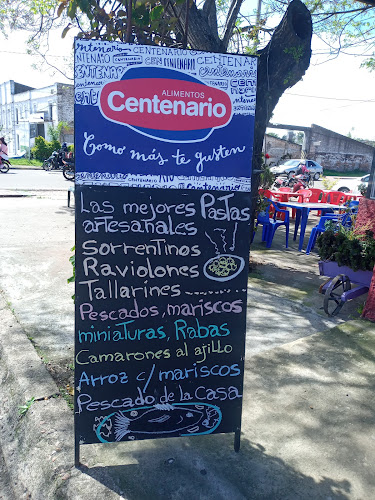 CENTENARIO
ALIMENTOS
Centenario
Como más te gusten
Las mejores Pastas
artesanales
Sorrentinos
Raviolones
Tallarines
Pescados, mariscos
miniaturas, Rabas
Camarones al ajillo
Arroz c/ mariscos
Pescado de la Casa